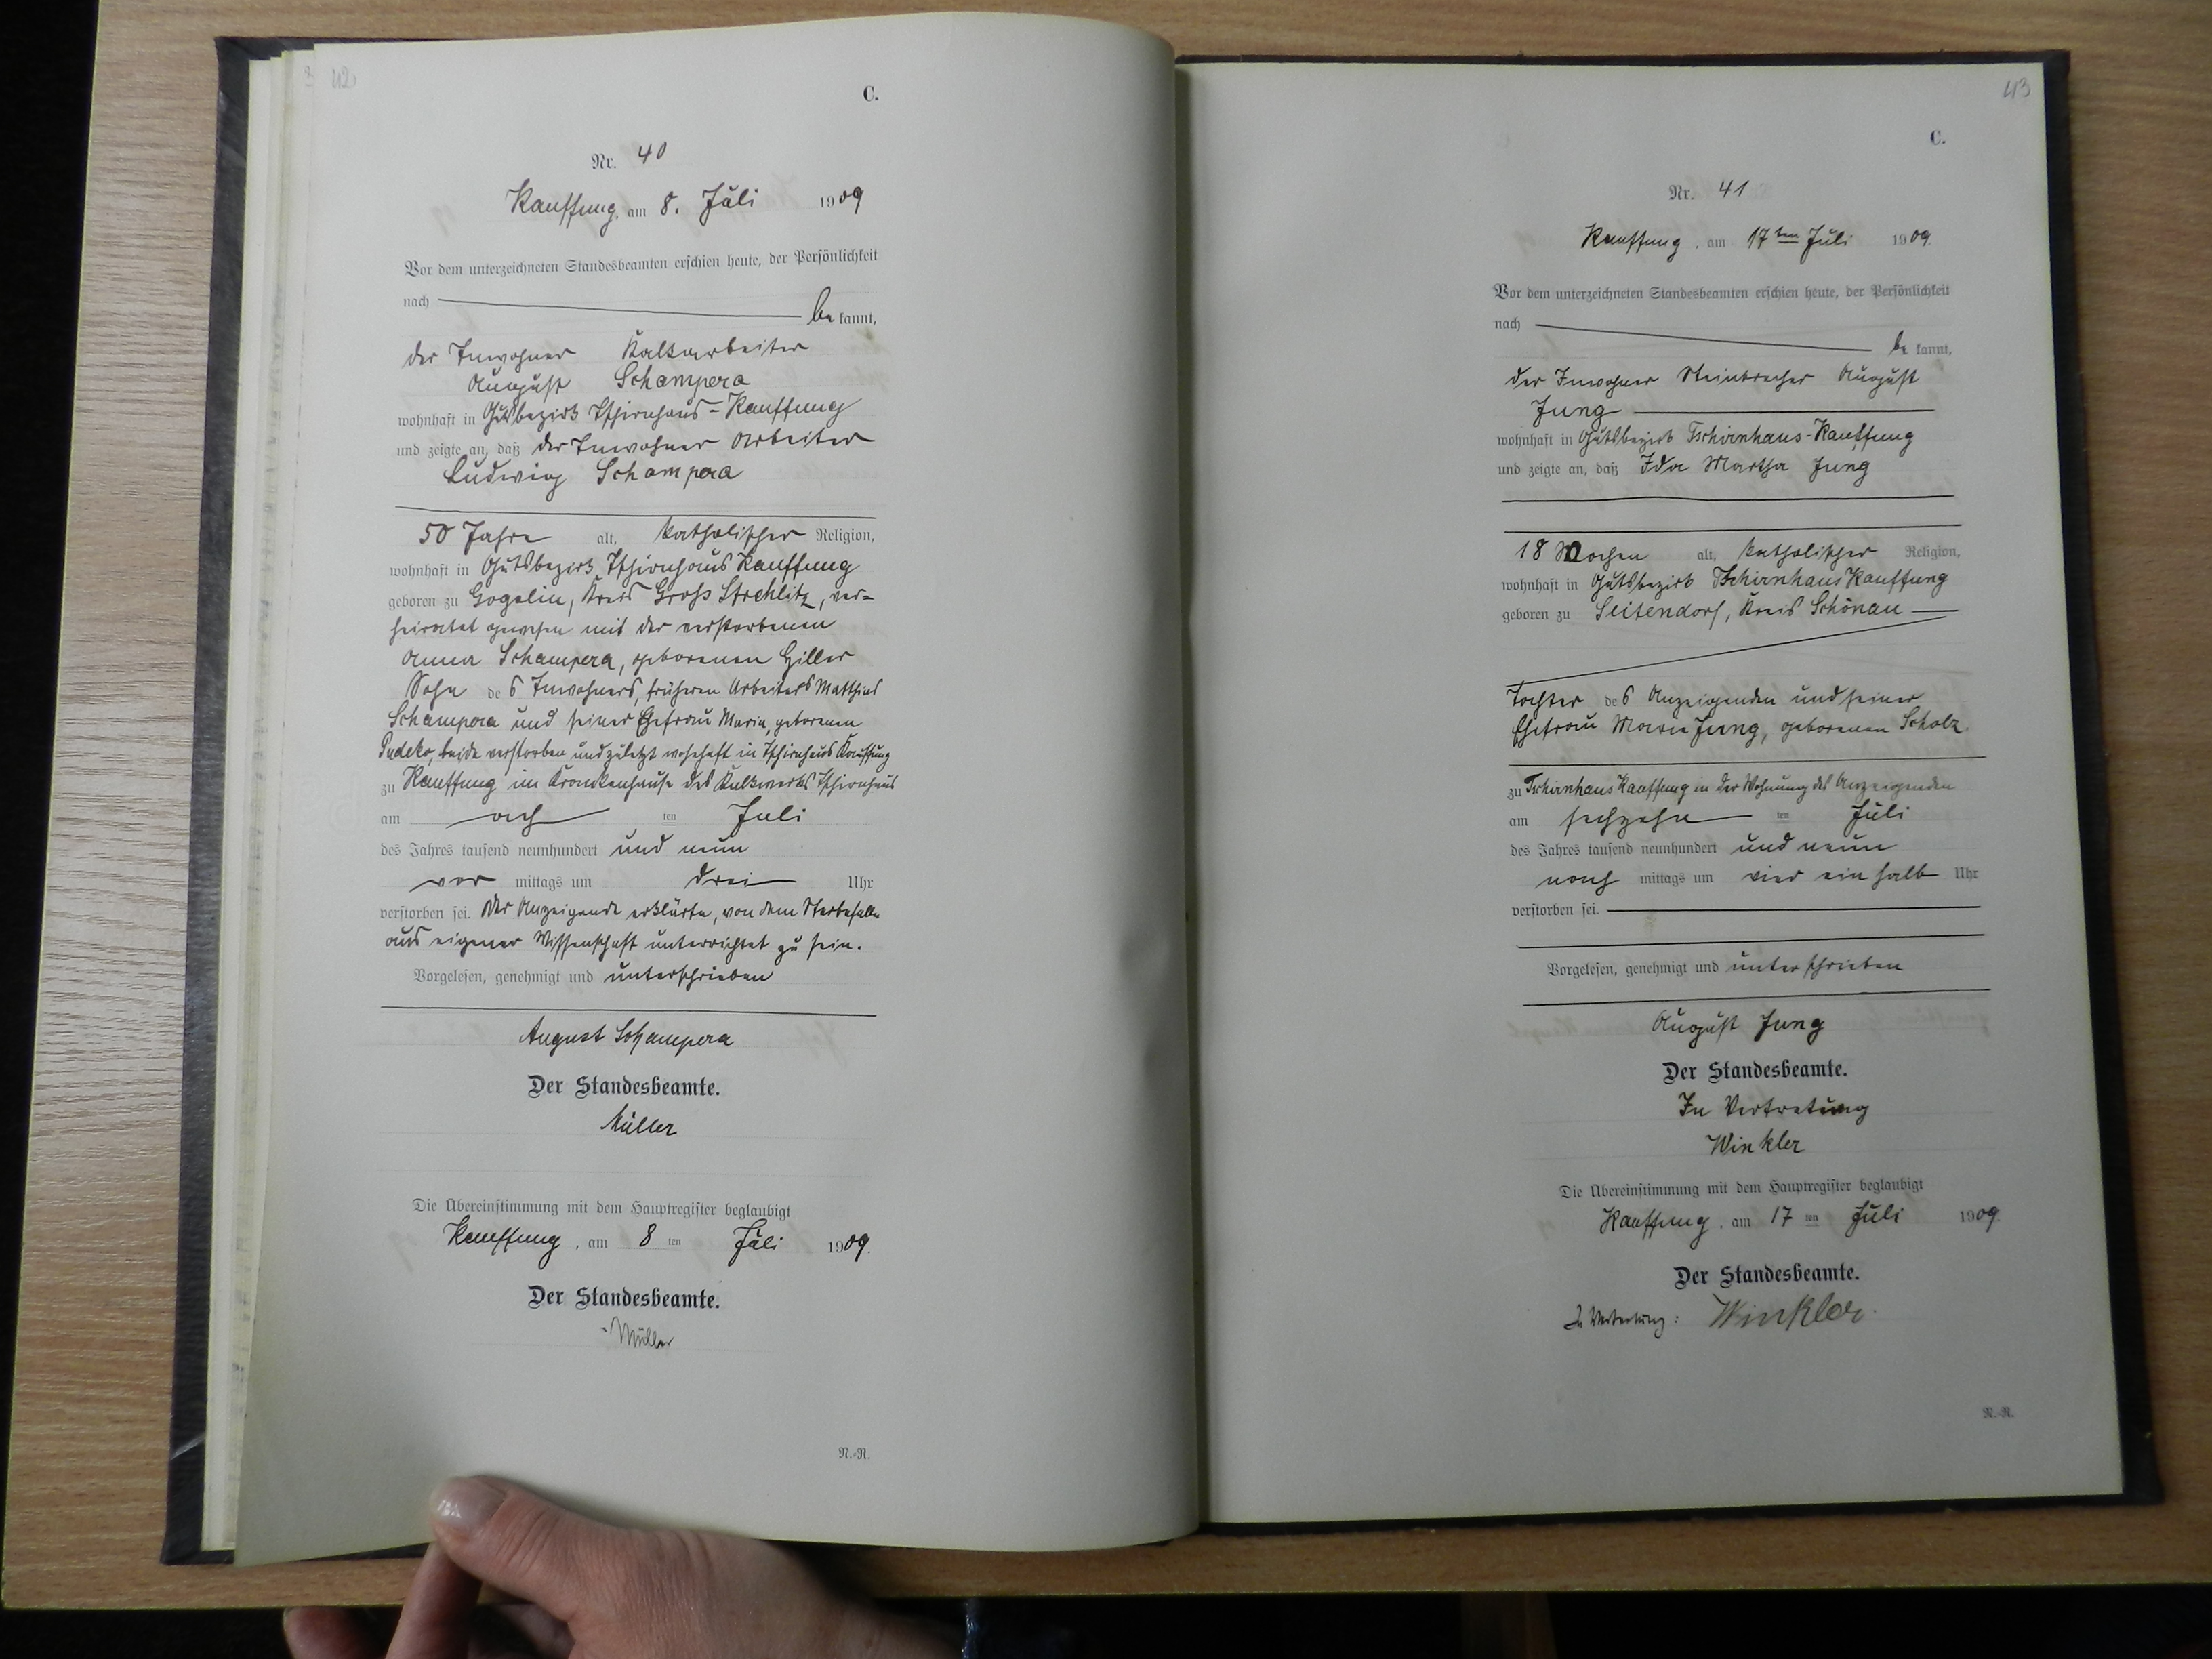 42
C.
Nr. 40
Kauffung, am 8. Juli 1909
Vor dem unterzeichneten Standesbeamten erschien heute, der Persönlichkeit
nach
be kannt,
der Inwohner Kalkarbeiter
August Schampera
wohnhaft in Gutsbezirk Tschirnhaus-Kauffung
und zeigte an, daß der Inwohner Arbeiter
Ludwig Schampera
50 Jahre alt, katholischer Religion,
wohnhaft in Gutsbezirk Tschirnhaus Kauffung
geboren zu Gogolin, Kreis Groß Strehlitz, ver-
heiratet gewesen mit der verstorbenen
Anna Schampera, geborenen Hiller
Sohn des Inwohners, früheren Arbeiters Matthias
Schampera und seiner Ehefrau Maria, geborenen
beide verstorben und zuletzt wohnhaft in Tschirnhaus Kauffung
zu Kauffung im Krankenhause des Kalkwerks Tschirnhaus
am ach ten Juli
des Jahres tausend neunhundert und neun
vor mittags um drei Uhr
verstorben sei. Der Anzeigende erklärte, von dem Sterbefalle
aus eigener Wissenschaft unterrichtet zu sein.
Vorgelesen, genehmigt und unterschrieben
August Schampera
Der Standesbeamte.
Müller
Die Übereinstimmung mit dem Hauptregister beglaubigt
Kauffung, am 8 ten Juli 1909.
Der Standesbeamte.
Müller
N.-R.
43
C.
Nr. 41
Kauffung, am 17ten Juli 1909.
Vor dem unterzeichneten Standesbeamten erschien heute, der Persönlichkeit
nach
be kannt,
der Inwohner Steinbrecher August
Jung
wohnhaft in Gutsbezirk Tschirnhaus-Kauffung
und zeigte an, daß Ida Martha Jung
18 Wochen alt, katholischer Religion,
wohnhaft in Gutsbezirk Tschirnhaus Kauffung
geboren zu Seitendorf, Kreis Schönau
Tochter des Anzeigenden und seiner
Ehefrau Marie Jung, geborenen Scholz
zu Tschirnhaus Kauffung in der Wohnung des Anzeigenden
am sechzehn ten Juli
des Jahres tausend neunhundert und neun
nach mittags um vier ein halb Uhr
verstorben sei.
Vorgelesen, genehmigt und unterschrieben
August Jung
Der Standesbeamte.
In Vertretung
Winkler
Die Übereinstimmung mit dem Hauptregister beglaubigt
Kauffung, am 17 ten Juli 1909.
Der Standesbeamte.
In Vertretung: Winkler.
N.-R.